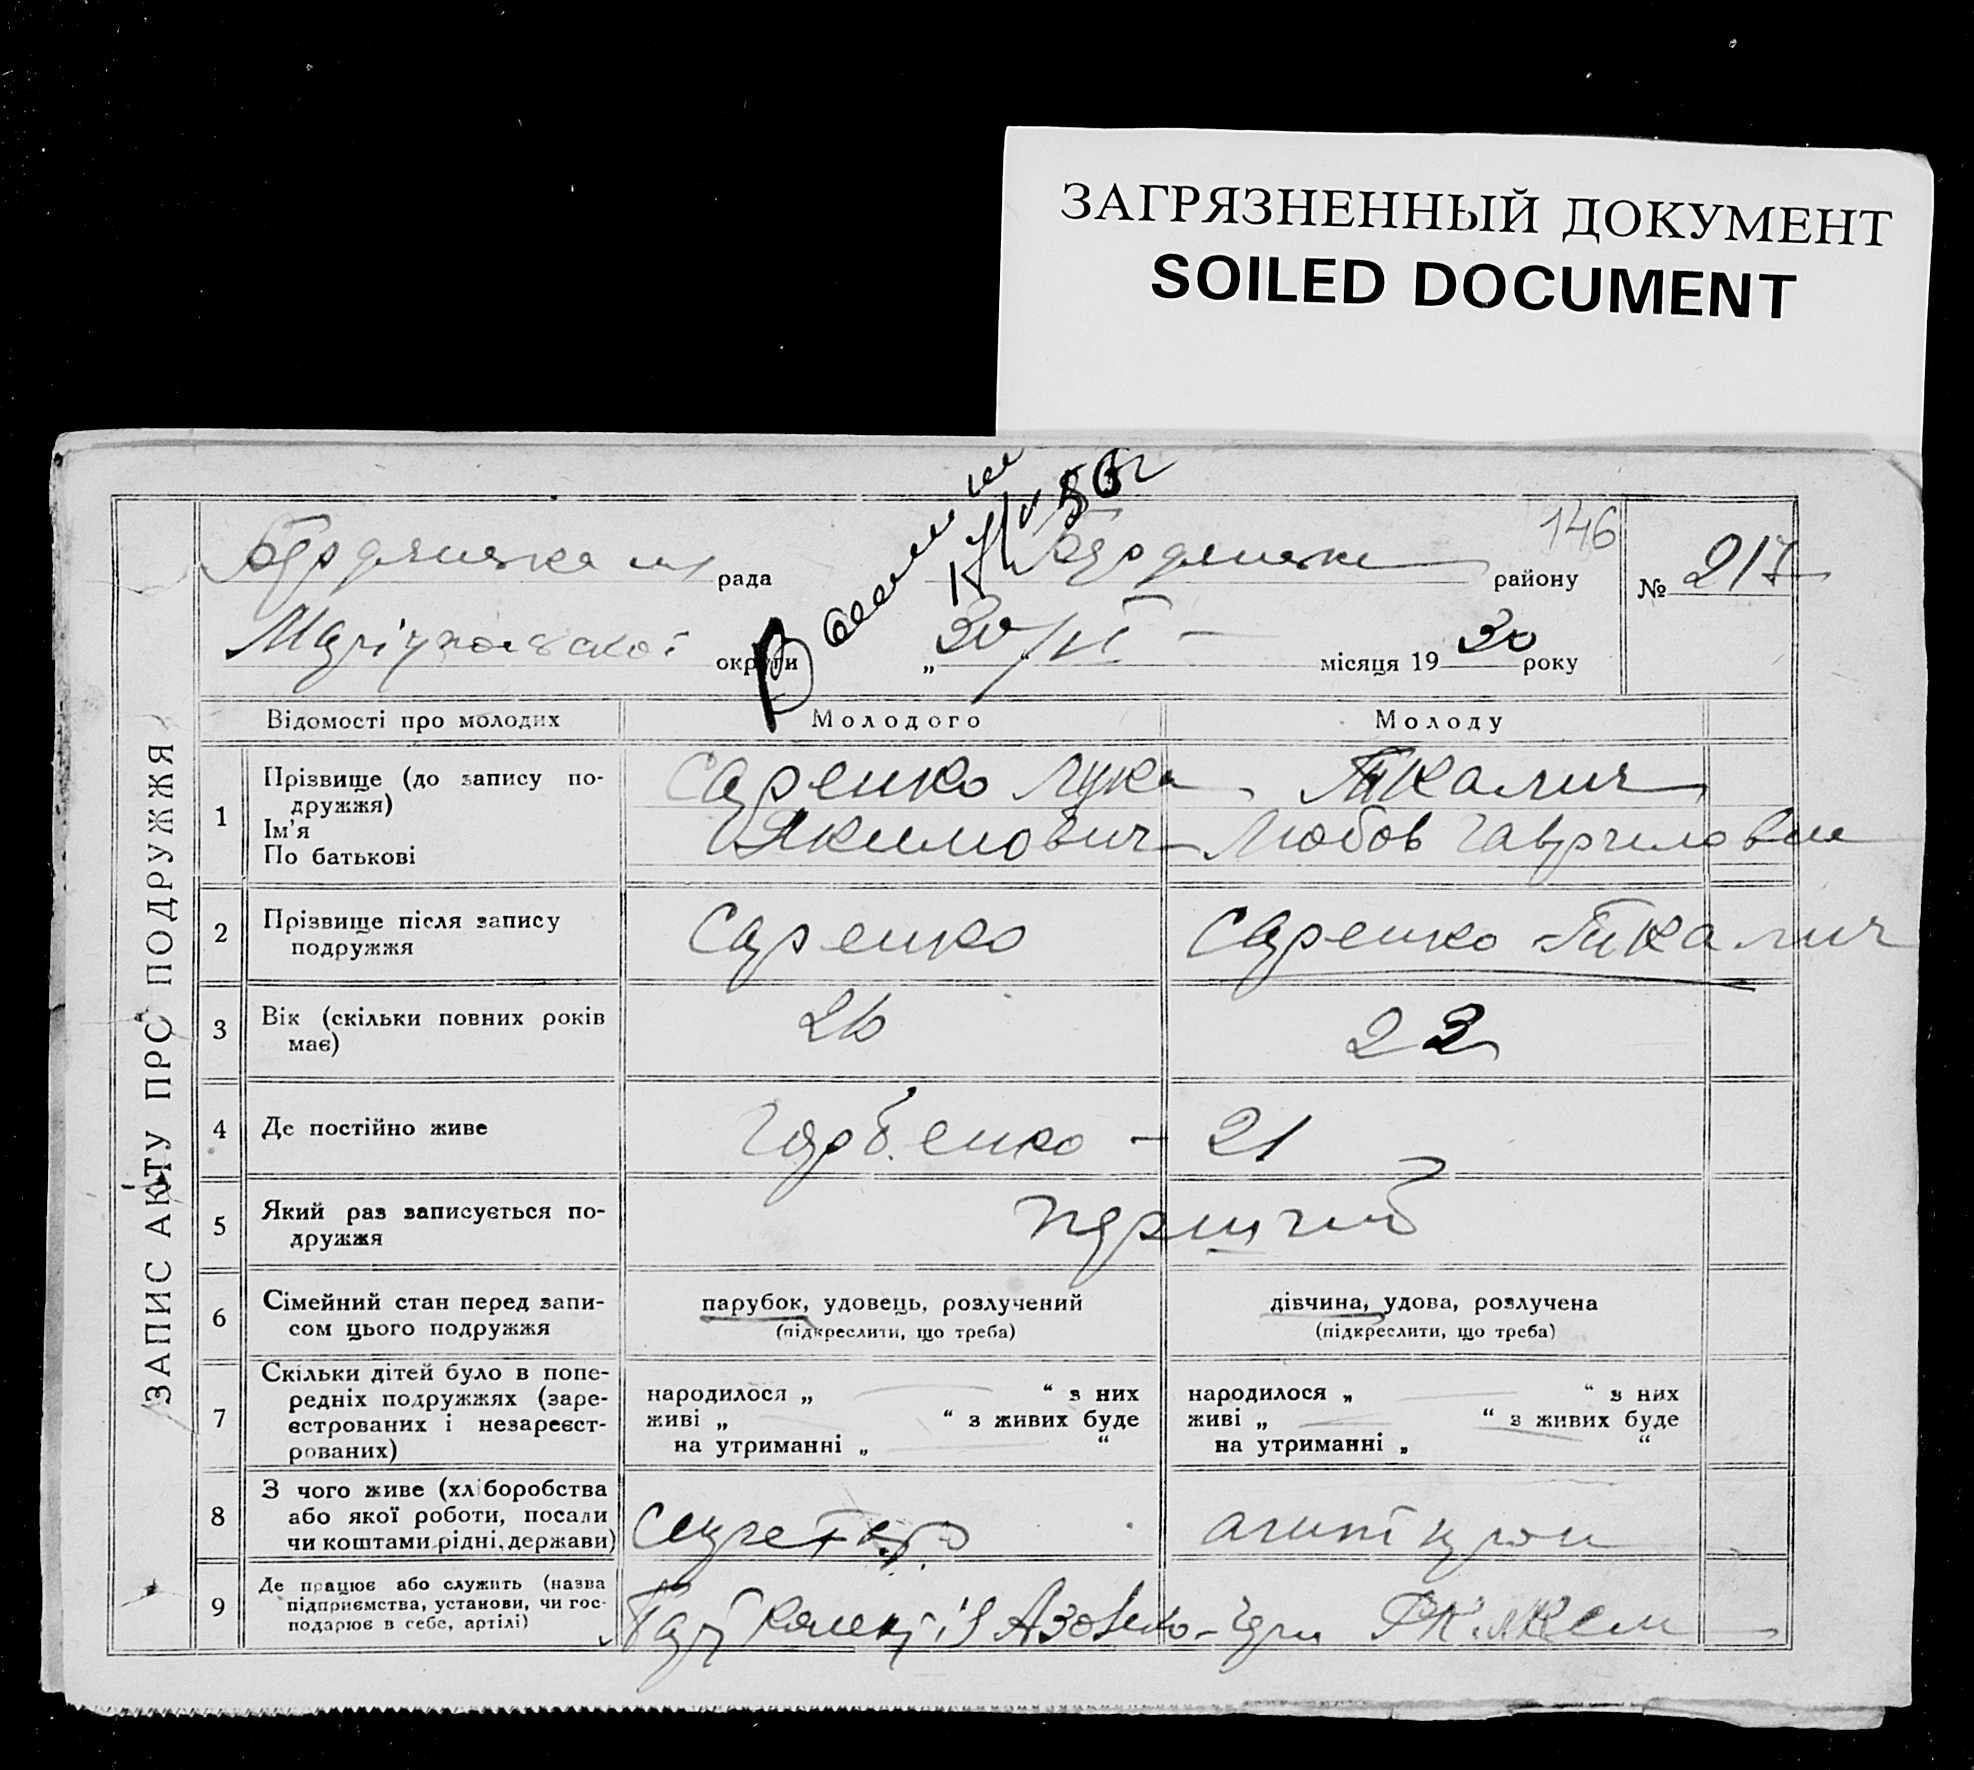 ЗАГРЯЗНЕННЫЙ ДОКУМЕНТ
SOILED DOCUMENT
146
рада
району
№ 217
Маріупольської округи „30/VI“ місяця 1930 року
ЗАПИС АКТУ ПРО ПОДРУЖЖЯ
Відомості про молодих
Молодого
Молоду
1
Прізвище (до запису по-
дружжя)
Ім'я
По батькові
Саренко Лука
Якимович
Ткалич
Любов Гавриловна
2
Прізвище після запису
подружжя
Саренко
Саренко-Ткалич
3
Вік (скільки повних років
має)
26
22
4
Де постійно живе
Горбенко - 21
5
Який раз записується по-
дружжя
перший
6
Сімейний стан перед запи-
сом цього подружжя
парубок, удовець, розлучений
(підкреслити, що треба)
дівчина, удова, розлучена
(підкреслити, що треба)
7
Скільки дітей було в попе-
редніх подружжях (заре-
єстрованих і незареєст-
рованих)
народилося „ “ з них
живі „ “ з живих буде
на утриманні „ “
народилося „ “ з них
живі „ “ з живих буде
на утриманні „ “
8
З чого живе (хліборобства
або якої роботи, посади
чи коштами рідні, держави)
секретар
агітпроп
9
Де працює або служить (назва
підприємства, установи, чи гос-
подарює в себе, артілі)